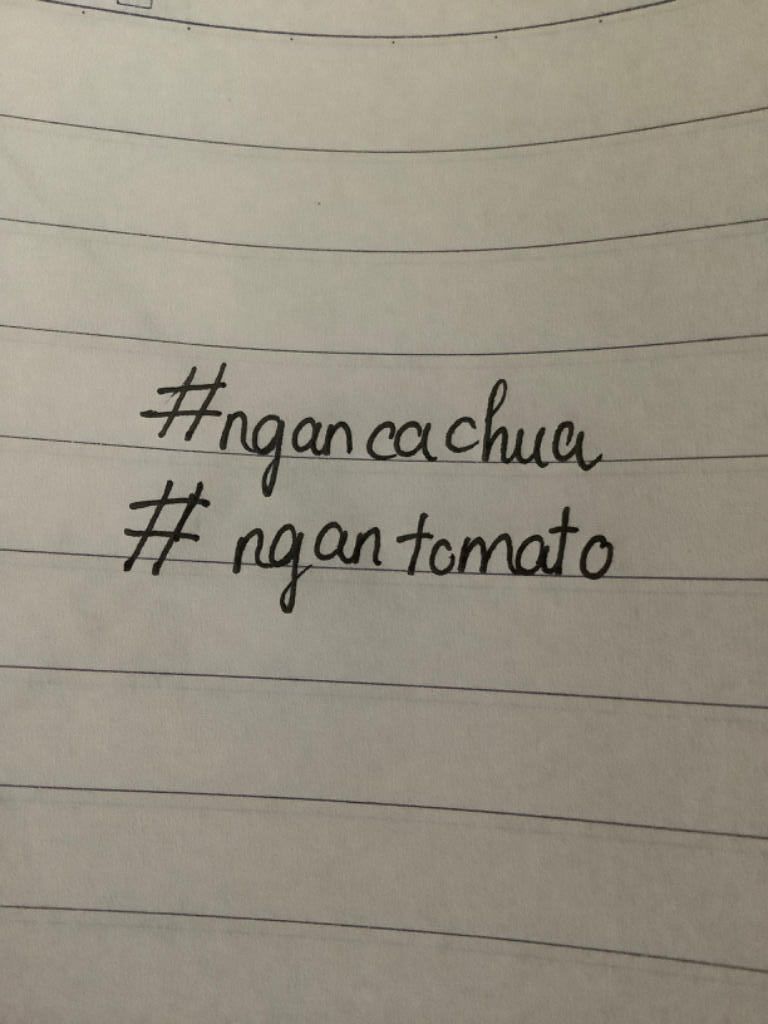 #ngancachua
# ngantomato